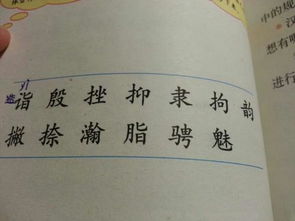 中的规
汉
想有
进行
诣 殷 挫 抑 隶 拘 韵
撇 捺 瀚 脂 骋 魅